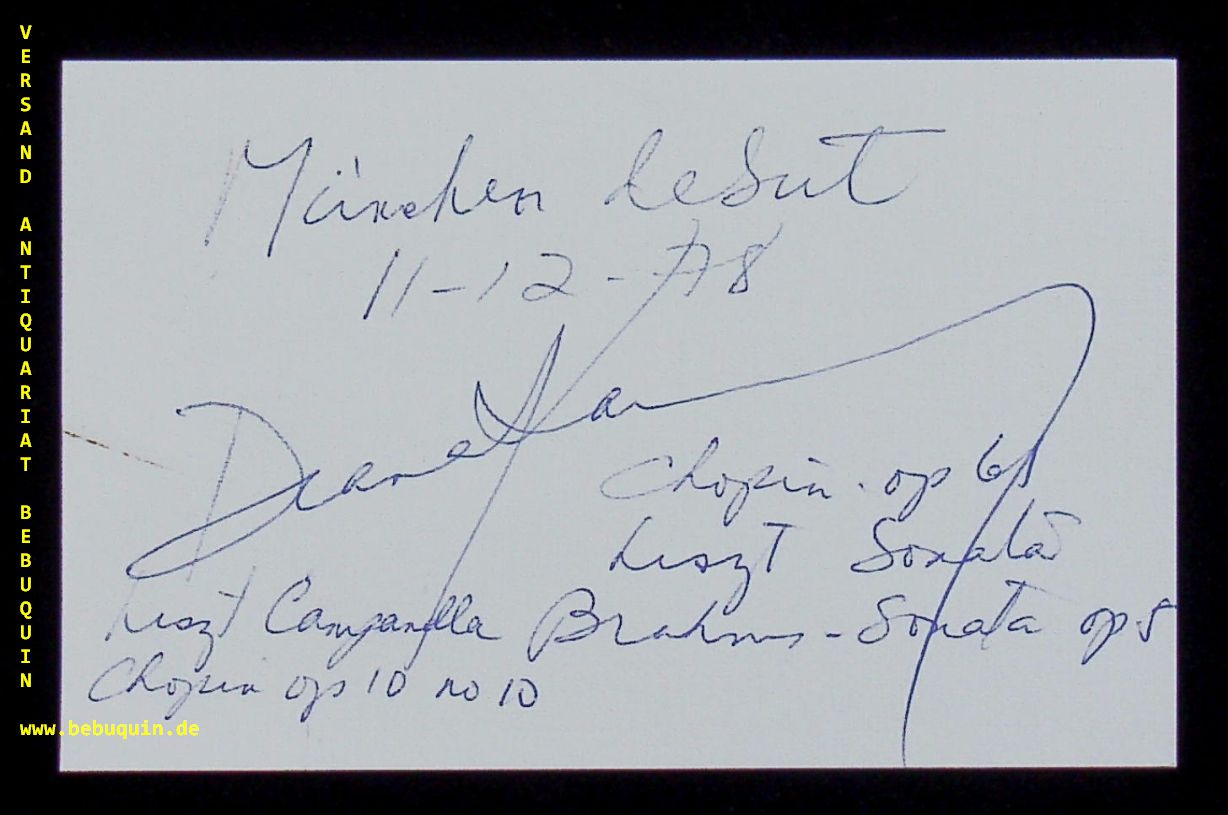 VERSAND ANTIQUARIAT BEBUQUIN
München debut
11-12-78
Diane
Chopin. op 61
Liszt Sonata
Liszt Campanella Brahms - Sonata op 5
Chopin op 10 no 10
www.bebuquin.de